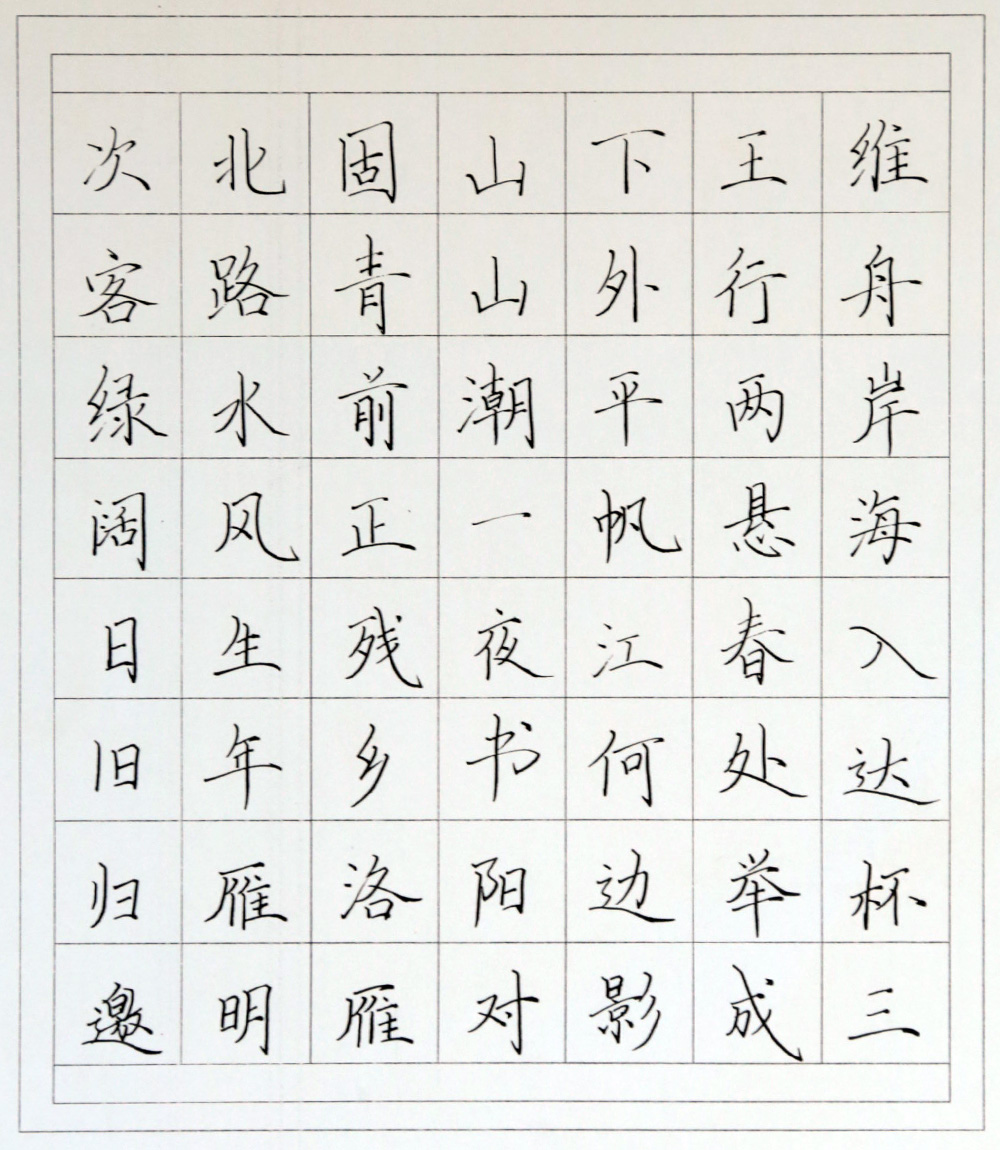 次北固山下王维
客路青山外行舟
绿水前潮平两岸
阔风正一帆悬海
日生残夜江春入
旧年乡书何处达
归雁洛阳边举杯
邀明雁对影成三